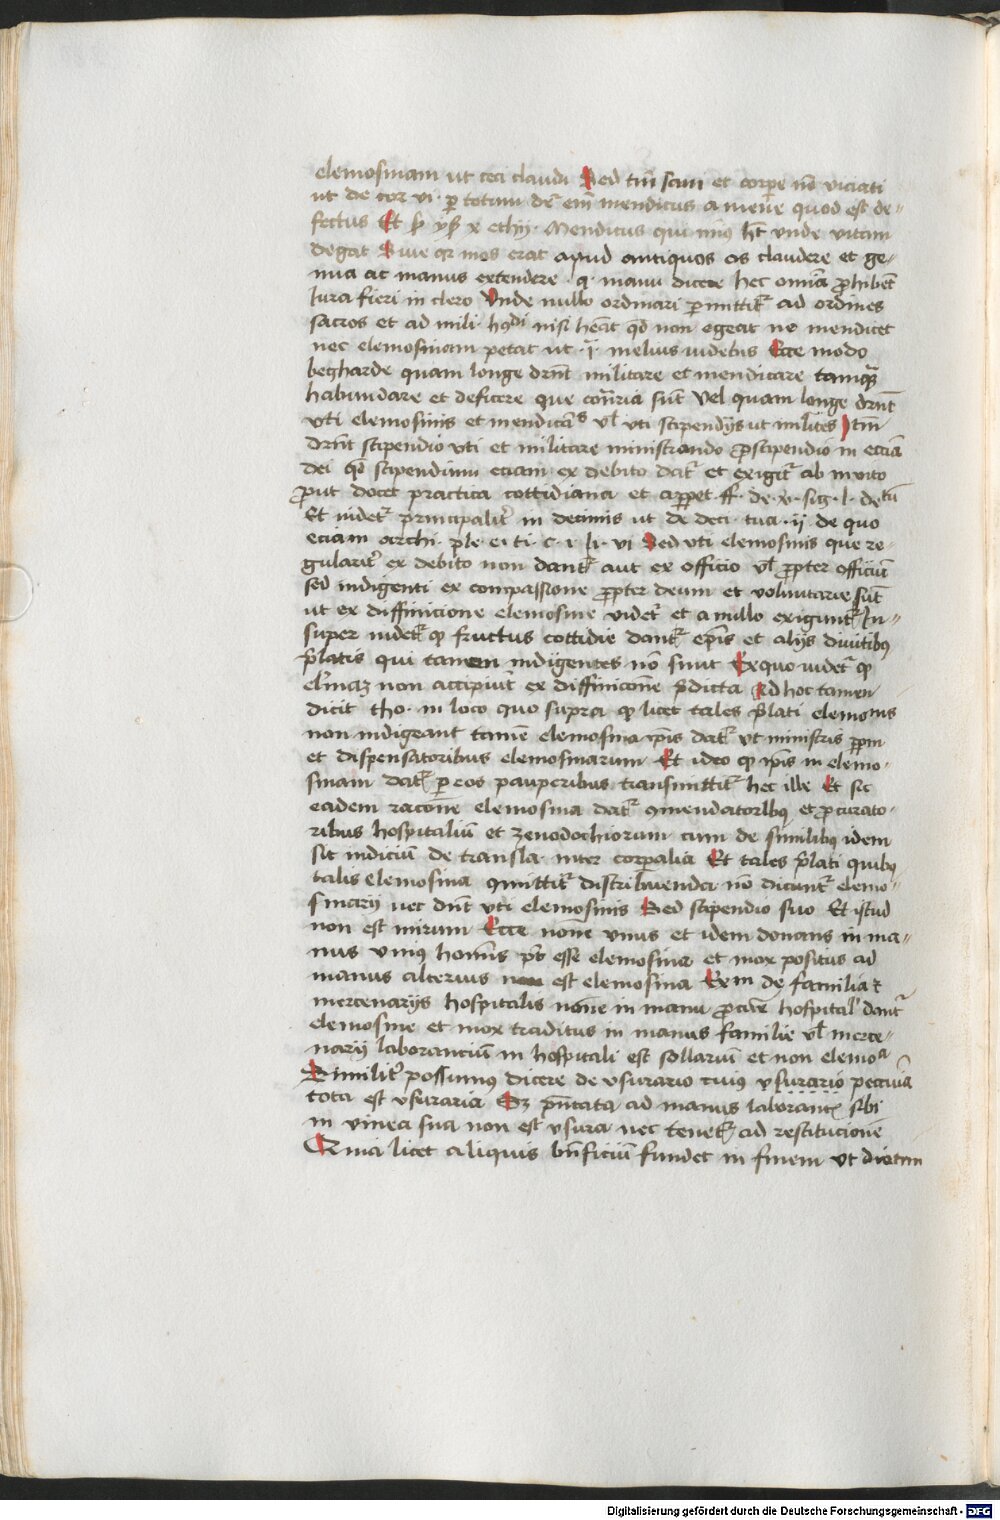 elemosinam ut ceci claudi Sed tm̄ sani et corpe nō viciati
ut de cor vi · p totum dr̄ em̄ mendicus a mene quod est de-
fectus Et ẜ yẜ x ethy · Mendicus qui min9 ht̄ vnde vitam
degat Siue qr mos erat apud antiquos os claudere et ge-
nua ac manus extendere · q · manu dicere hec omnia ꝓhibēt
Iura fieri in clero Vnde nullo ordinari ꝑmittit̄ ad ordines
sacros et ad mili · h9di nisi heāt qd non egeat ne mendicet
nec elemosinam petat ut · i · melius videbis Ecce modo
begharde quam longe drn̄t militare et mendicare tamqᷓ
habundare et deficere que cōtraria sūt Vel quam longe drn̄t
vti elemosinis et mendicās vl̄ vti stipendijs ut milites Itm̄
drn̄t stipendio vti et militare ministrando ꝓ stipendio in eccīa
dei qd stipendium eciam ex debito dat̄ et exigit̄ ab inuito
ꝓut docet practica cottidiana et apꝑet ff · de · v · sig · l · detū
Et videt̄ principalit̄ in decimis ut de deci · tua · ij de quo
eciam archi · ple · e · ti · c · i · li · vi Sed vti elemosinis que re-
gularit̄ ex debito non dant̄ aut ex officio vl̄ ꝓpter officiū
sed indigenti ex compassione ꝓpter deum et voluntarie sūt
ut ex diffinicione elemosine videt̄ et a nullo exigunt̄ In-
super videt̄ ꝙ fructus cottidie dant̄ ep̄is et alijs diuitibus
p̄latis qui tamen indigentes nō sunt Ex quo videt̄ ꝙ
elīnaꝫ non accipiūt ex diffinicōne p̄dicta Ad hoc tamen
dicit tho · in loco quo supra ꝙ licet tales p̄lati elemonis
non indigeant tamē elemosina ip̄is dat̄ vt ministris ꝑꝑm
et dispensatoribus elemosinarum Et ideo ꝙ ip̄is in elemo-
sinam dat̄ ꝑ eos pauperibus transmittit̄ hec ille Et sic
eadem racōne elemosina dat̄ ꝯmendatoribꝰ et ꝓcurato-
ribus hospitaliū et zenodochiorum cum de similibꝰ idem
sit iudiciū de transla · inter corporalia Et tales p̄lati quibꝰ
talis elemosina ꝯmittit̄ distribuenda nō dicunt̄ elemo-
sinarij nec dn̄t vti elemosinis Sed stipendio suo Et istud
non est mirum Ecce nōne vnus et idem donans in ma-
nus vniꝰ homīs pt̄ esse elemosina et mox positus ad
manus alterius non est elemosina Exm de familia et
mercenarijs hospitalis nōne in manu ꝓcure hospital' dant̄
elemosine et mox traditus in manus familie vl̄ merce-
narij laborancium in hospitali est sollariū et non elemoa
Similit̄ possumus dicere de vsurario cuius vsurario peccuīa
tota est vsuraria Sꝫ p̄ntata ad manus laborantꝭ sibi
in vinea sua non est vsura nec tenet̄ ad restitucionē
Quia licet aliquis bn̄ficiū fundet in finem vt dictam
Digitalisierung gefördert durch die Deutsche Forschungsgemeinschaft - DFG